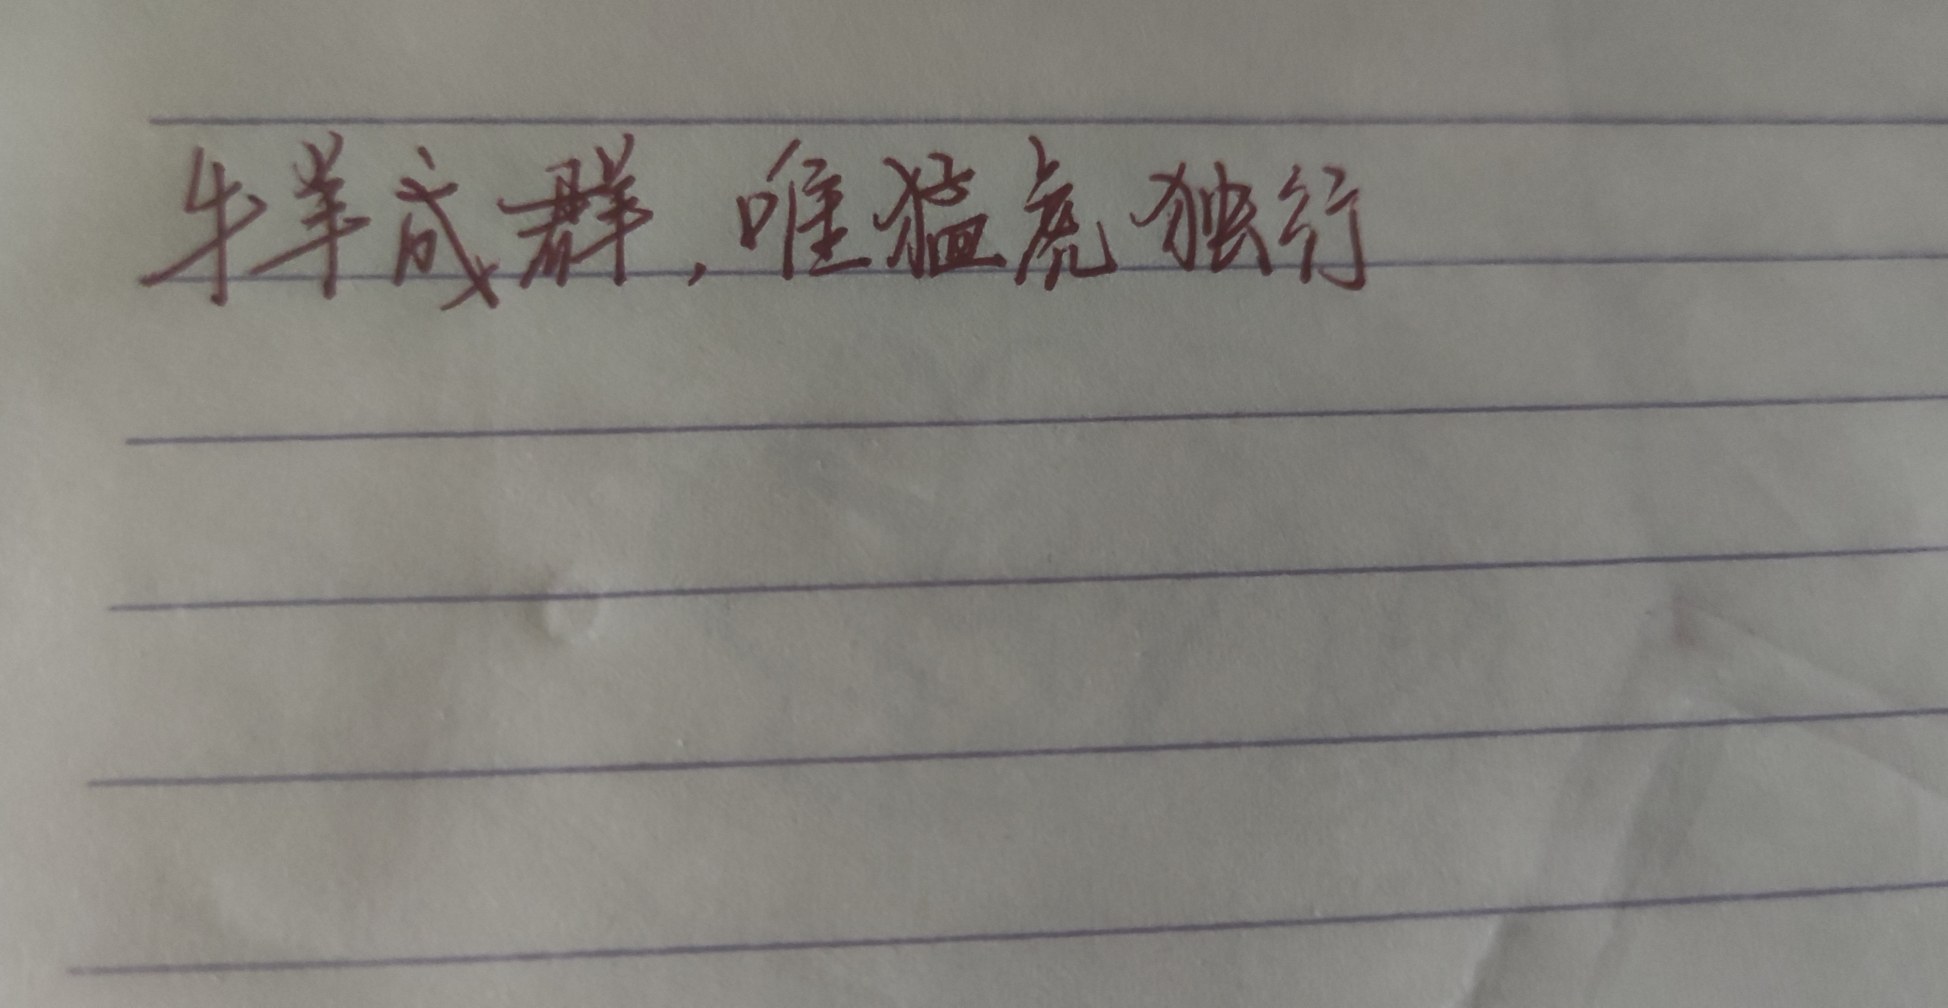 牛羊成群，唯猛虎独行